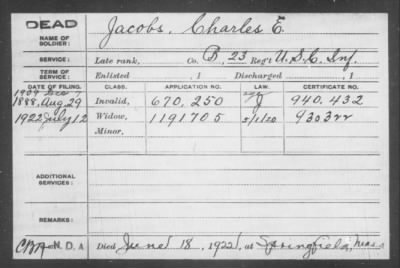 DEAD
NAME OF SOLDIER: Jacobs, Charles E.
SERVICE: Late rank, Co. B, 23 Reg't U.S.C. Inf.
TERM OF SERVICE: Enlisted , 1 Discharged , 1
DATE OF FILING. CLASS. APPLICATION NO. LAW. CERTIFICATE NO.
1888, Aug 29 Invalid, 670,250 940,432
1922 July 12 Widow, 1191705 5/1/20 930322
Minor,
ADDITIONAL SERVICES:
REMARKS:
N.D.A Died June 18, 1922, at Springfield, Mass